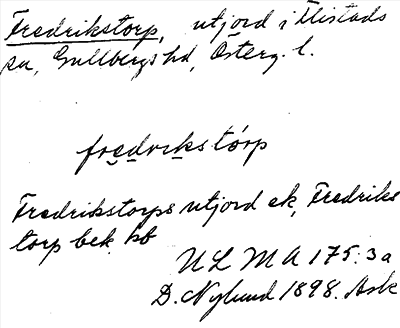 Fredrikstorp, utjord i Flistads
sn, Gullbergs hd, Österg. l.
fredrikstórp
Fredrikstorps utjord ek, Fredriks
torp bek. hb
ULMA 175:3a
D. Nylund 1898. Ask